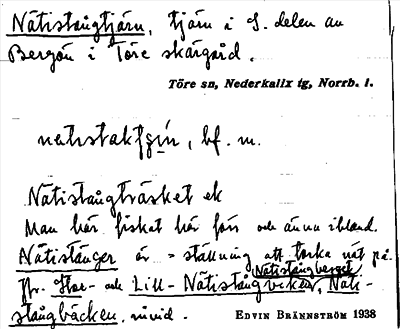 Nätistångtjärn, tjärn i S. delen av
Bergön i Töre skärgård.
Töre sn, Nederkalix tg, Norrb. l.
bf. m.
Nätistångträsket ek
Man har fiskat här förr och ännu ibland.
Nätistänger är = ställning att torka nät på.
Nätistångberget
Jfr. Stor- och Lill-Nätistångviken, Näti-
stångbäcken, invid.
EDVIN BRÄNNSTRÖM 1938